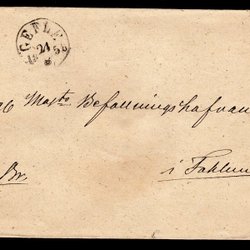 GEFLE
21
Maj:ts Befallningshafvan
i Fahlun
Br.